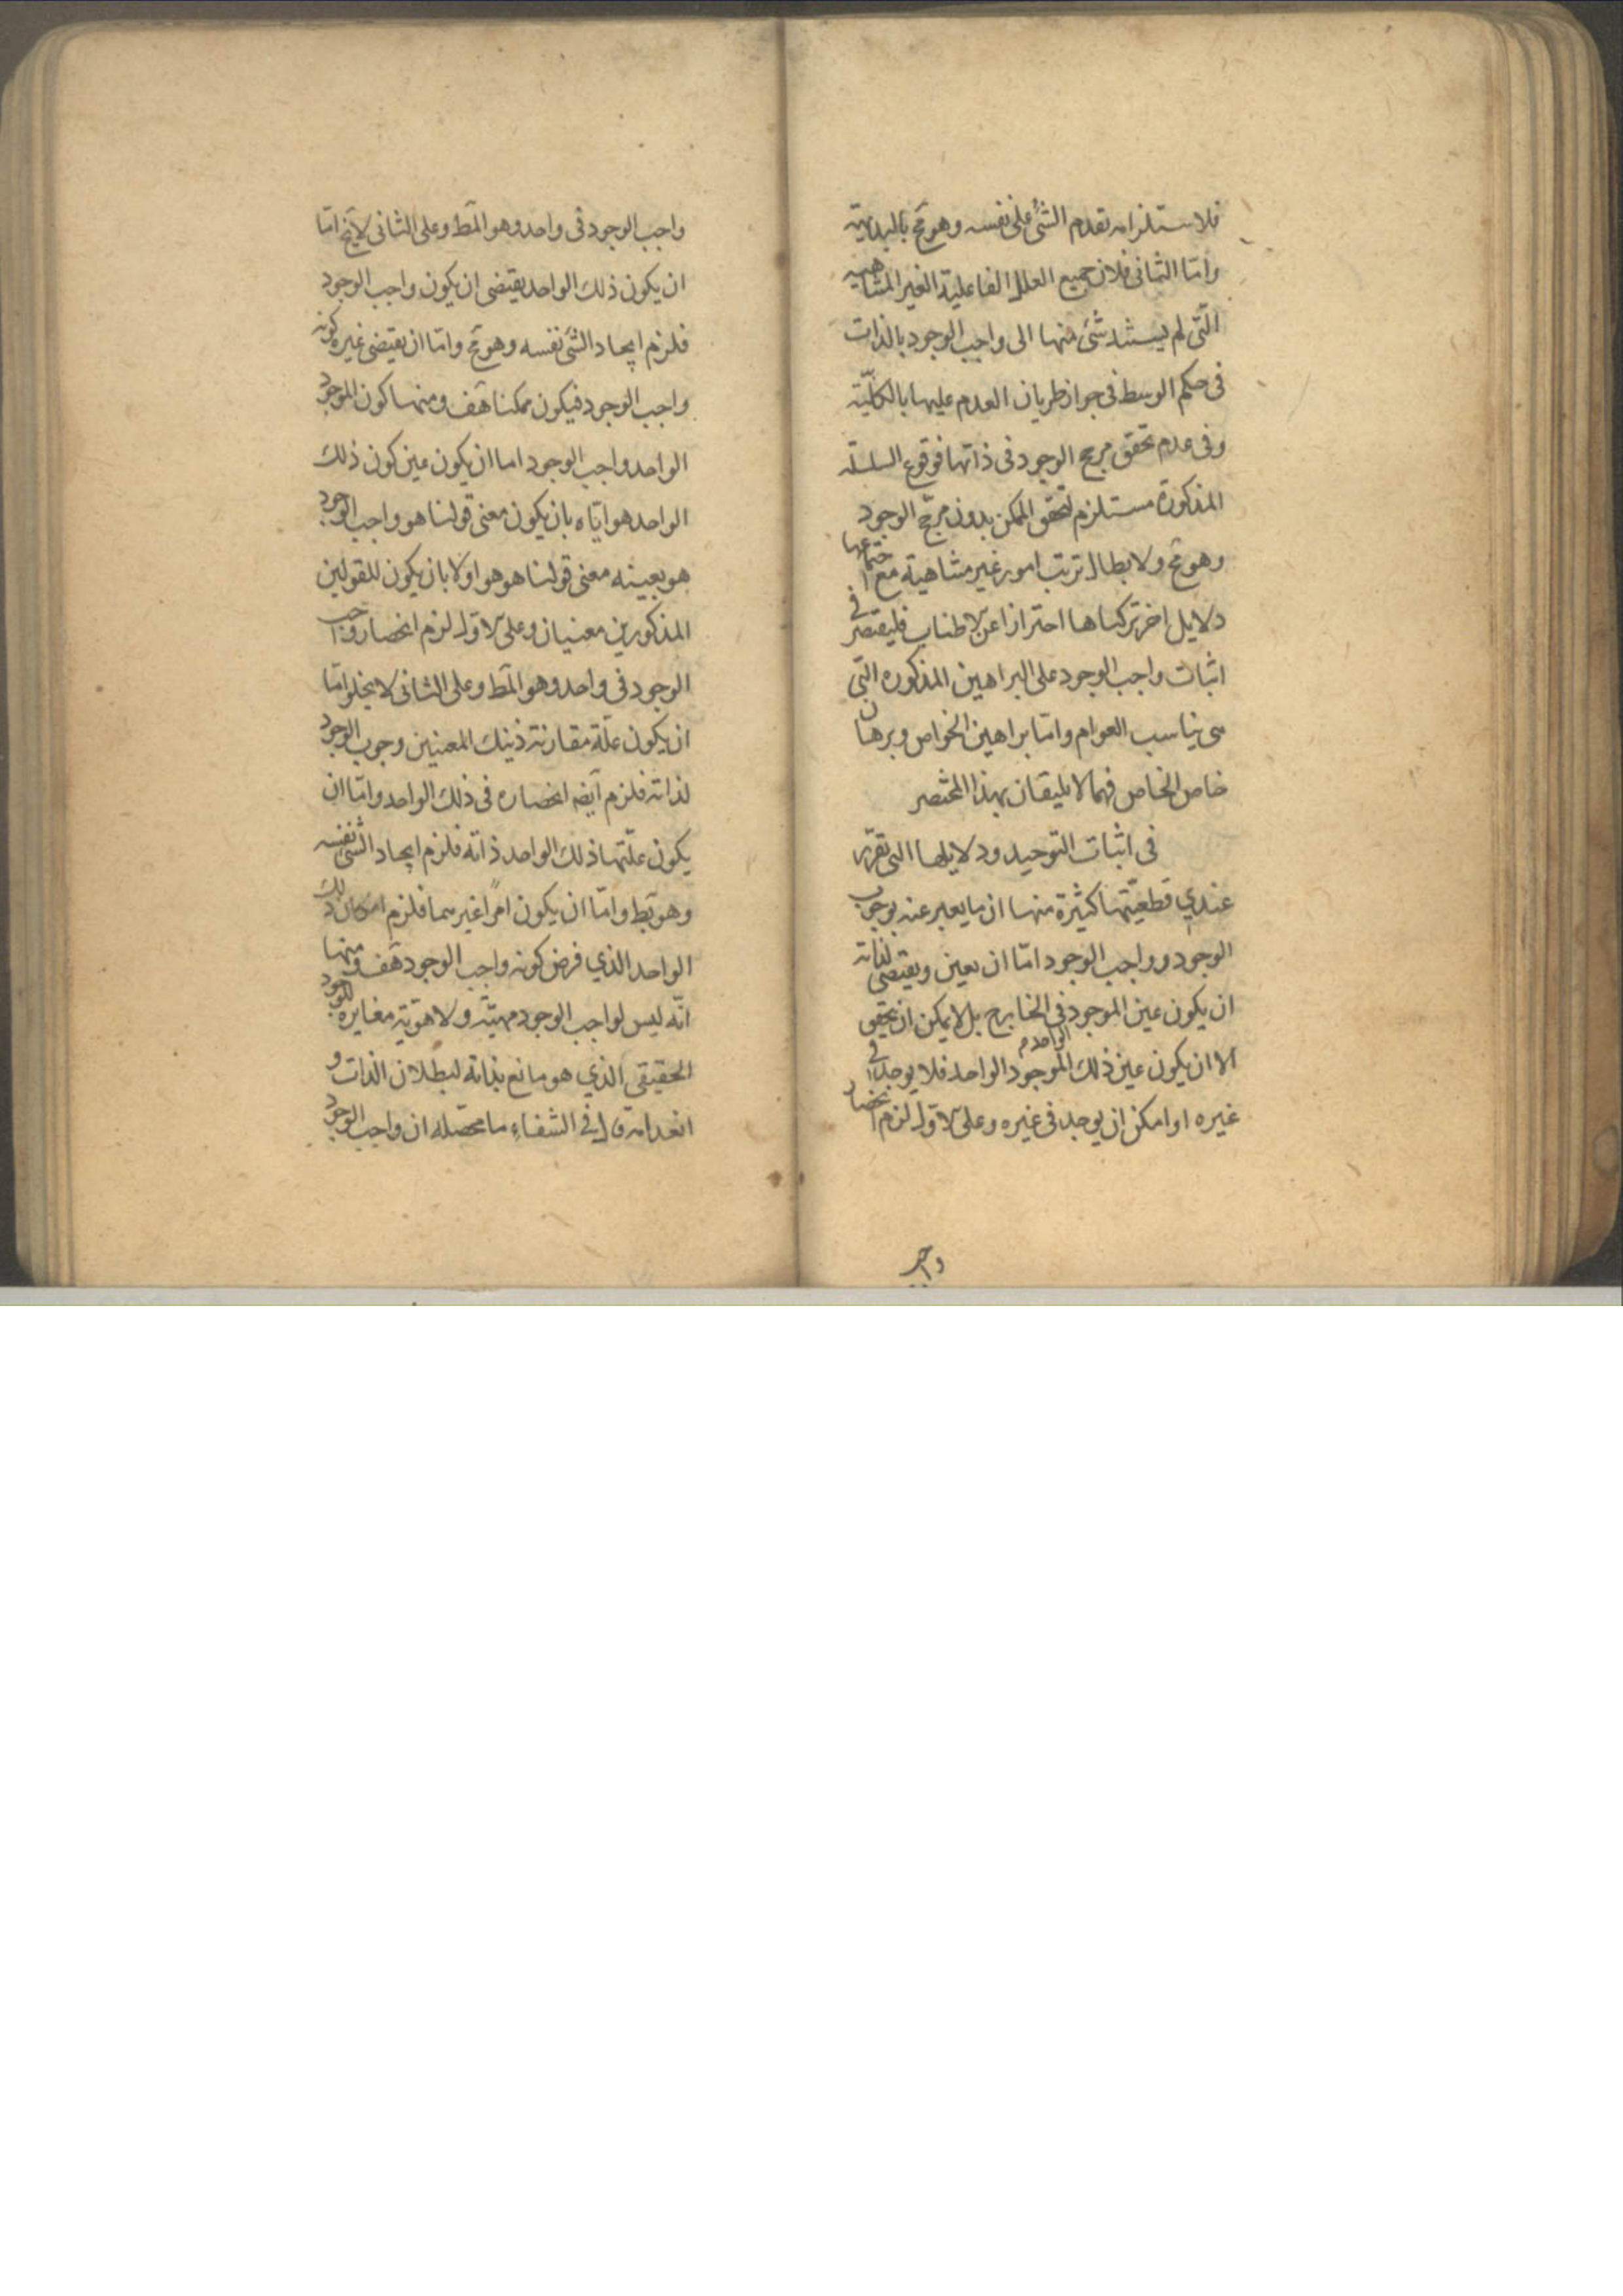 فلاستلزامه تقدم الشئ على نفسه وهو مح بالبديهة
وامّا الثانى فلان جميع العلل الفاعلية الغير المتناهيه
التّى لم يستند شئ منها الى واجب الوجود بالذات
فى حكم الوسط فى جواز طريان العدم عليها بالكلّيّة
وفى عدم تحقق مرجح الوجود فى ذاتها فوقوع السلسلة
المذكورة مستلزم لتحقق الممكن بدون مرجّح الوجود
وهو مح ولابطال ترتب امور غير متناهية مع اجتماعها
دلايل اخر تركناها احترازا عن الاطناب فليقتصر فى
اثبات واجب الوجود على البراهين المذكوره التّى
هى يناسب العوام وامّا براهين الخواص وبرهان
خاص الخاص فهما لا يليقان بهذا المختصر
فى اثبات التوحيد ودلايلها التى تقرّر
عندي قطعيّتها كثيرة منها ان ما يعبر عنه بوجوب
الوجود وواجب الوجود امّا ان يعين ويقتضى لذاته
ان يكون عين الموجود فى الخارج بل لا يمكن ان يتحقق
الا ان يكون عين ذلك الموجود الواحد فلا يوجد فى
غيره او امكن ان يوجد فى غيره وعلى الاوّل لزم انحصار
واجب
واجب الوجود فى واحد وهو المط وعلى الثانى لا يخ امّا
ان يكون ذلك الواحد يقتضى ان يكون واجب الوجود
فلزم ايجاد الشئ نفسه وهو مح وامّا ان يقتضى غيره كونه
واجب الوجود فيكون ممكنا هف ومنها كون الموجود
الواحد واجب الوجود اما ان يكون عين كون ذلك
الواحد هو ايّاه بان يكون معنى قولنا هو واجب الوجود
هو بعينه معنى قولنا هو هو او لا بان يكون للقولين
المذكورين معنيان وعلى الاوّل لزم انحصار واجب
الوجود فى واحد وهو المط وعلى الثانى لا يخلو امّا
ان يكون علّة مقارنة ذينك المعنيين وجوب الوجود
لذاته فلزم ايضه انحصاره فى ذلك الواحد وامّا ان
يكون علّتها ذلك الواحد ذاته فلزم ايجاد الشئ نفسه
وهو بط وامّا ان يكون امرًا غيرهما فلزم امكان ذلك
الواحد الذي فرض كونه واجب الوجود هف ومنها
انّه ليس لواجب الوجود مهيّة ولا هويّة مغايرة للوجود
الحقيقى الذي هو مانع بذاته لبطلان الذات و
انعدامه قال فى الشفاء ما محصّله ان واجب الوجود